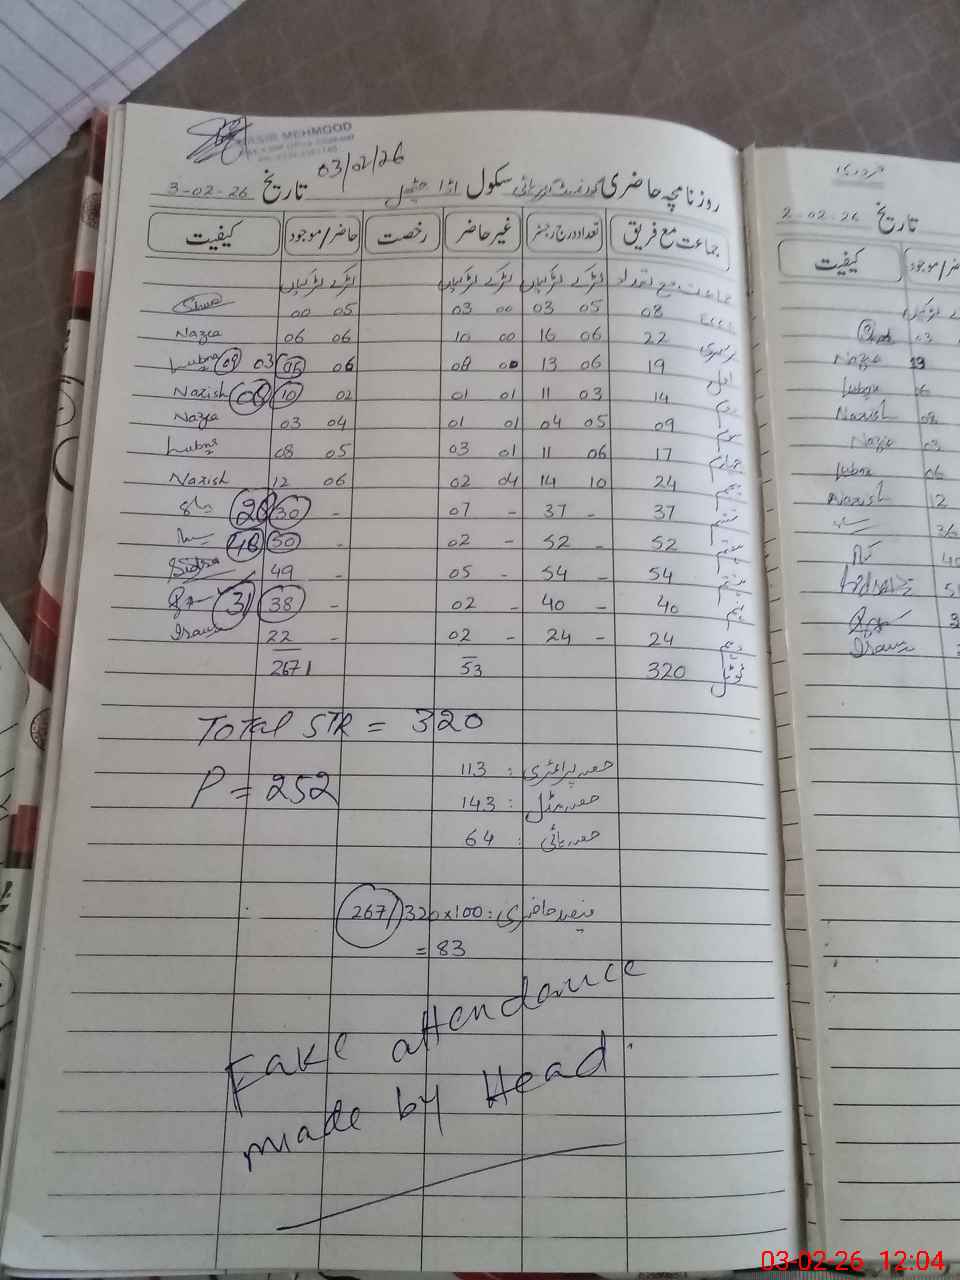 MEHMOOD
03/02/26
روزنامچہ حاضری گورنمنٹ گرلز ہائی سکول اڈا تاریخ 3-02-26
جماعت مع فریق تعداد درج رجسٹر غیر حاضر رخصت حاضر/موجود کیفیت
جماعت مع تعداد لڑکے لڑکیاں لڑکے لڑکیاں لڑکے لڑکیاں
ECCE 08 05 03 00 03 05 00
نرسری 22 06 16 00 10 06 06 Nazia
اول 19 06 13 00 08 06 05 03 08 Lubna
دوم 14 03 11 01 01 02 10 08 Narish
سوم 09 05 04 01 01 04 03 Nazia
چہارم 17 06 11 01 03 05 08 Lubna
پنجم 24 10 14 04 02 06 12 Narish
ششم 37 - 37 - 07 - 30 28
ہفتم 52 - 52 - 02 - 50 48
ہشتم 54 - 54 - 05 - 49 Sidra
نہم 40 - 40 - 02 - 38 31
دہم 24 - 24 - 02 - 22
ٹوٹل 320 53 267
Total STR = 320
P = 252
حصہ پرائمری : 113
حصہ مڈل : 143
حصہ ہائی : 64
فیصد حاضری : 267/320x100
= 83
Fake attendance
made by Head.
تاریخ 2-02-26
حاضر/موجود کیفیت
03
13 Nazia
16 Lubna
08 Narish
03 Nazia
06 Lubna
12 Narish
03-02-26 12:04